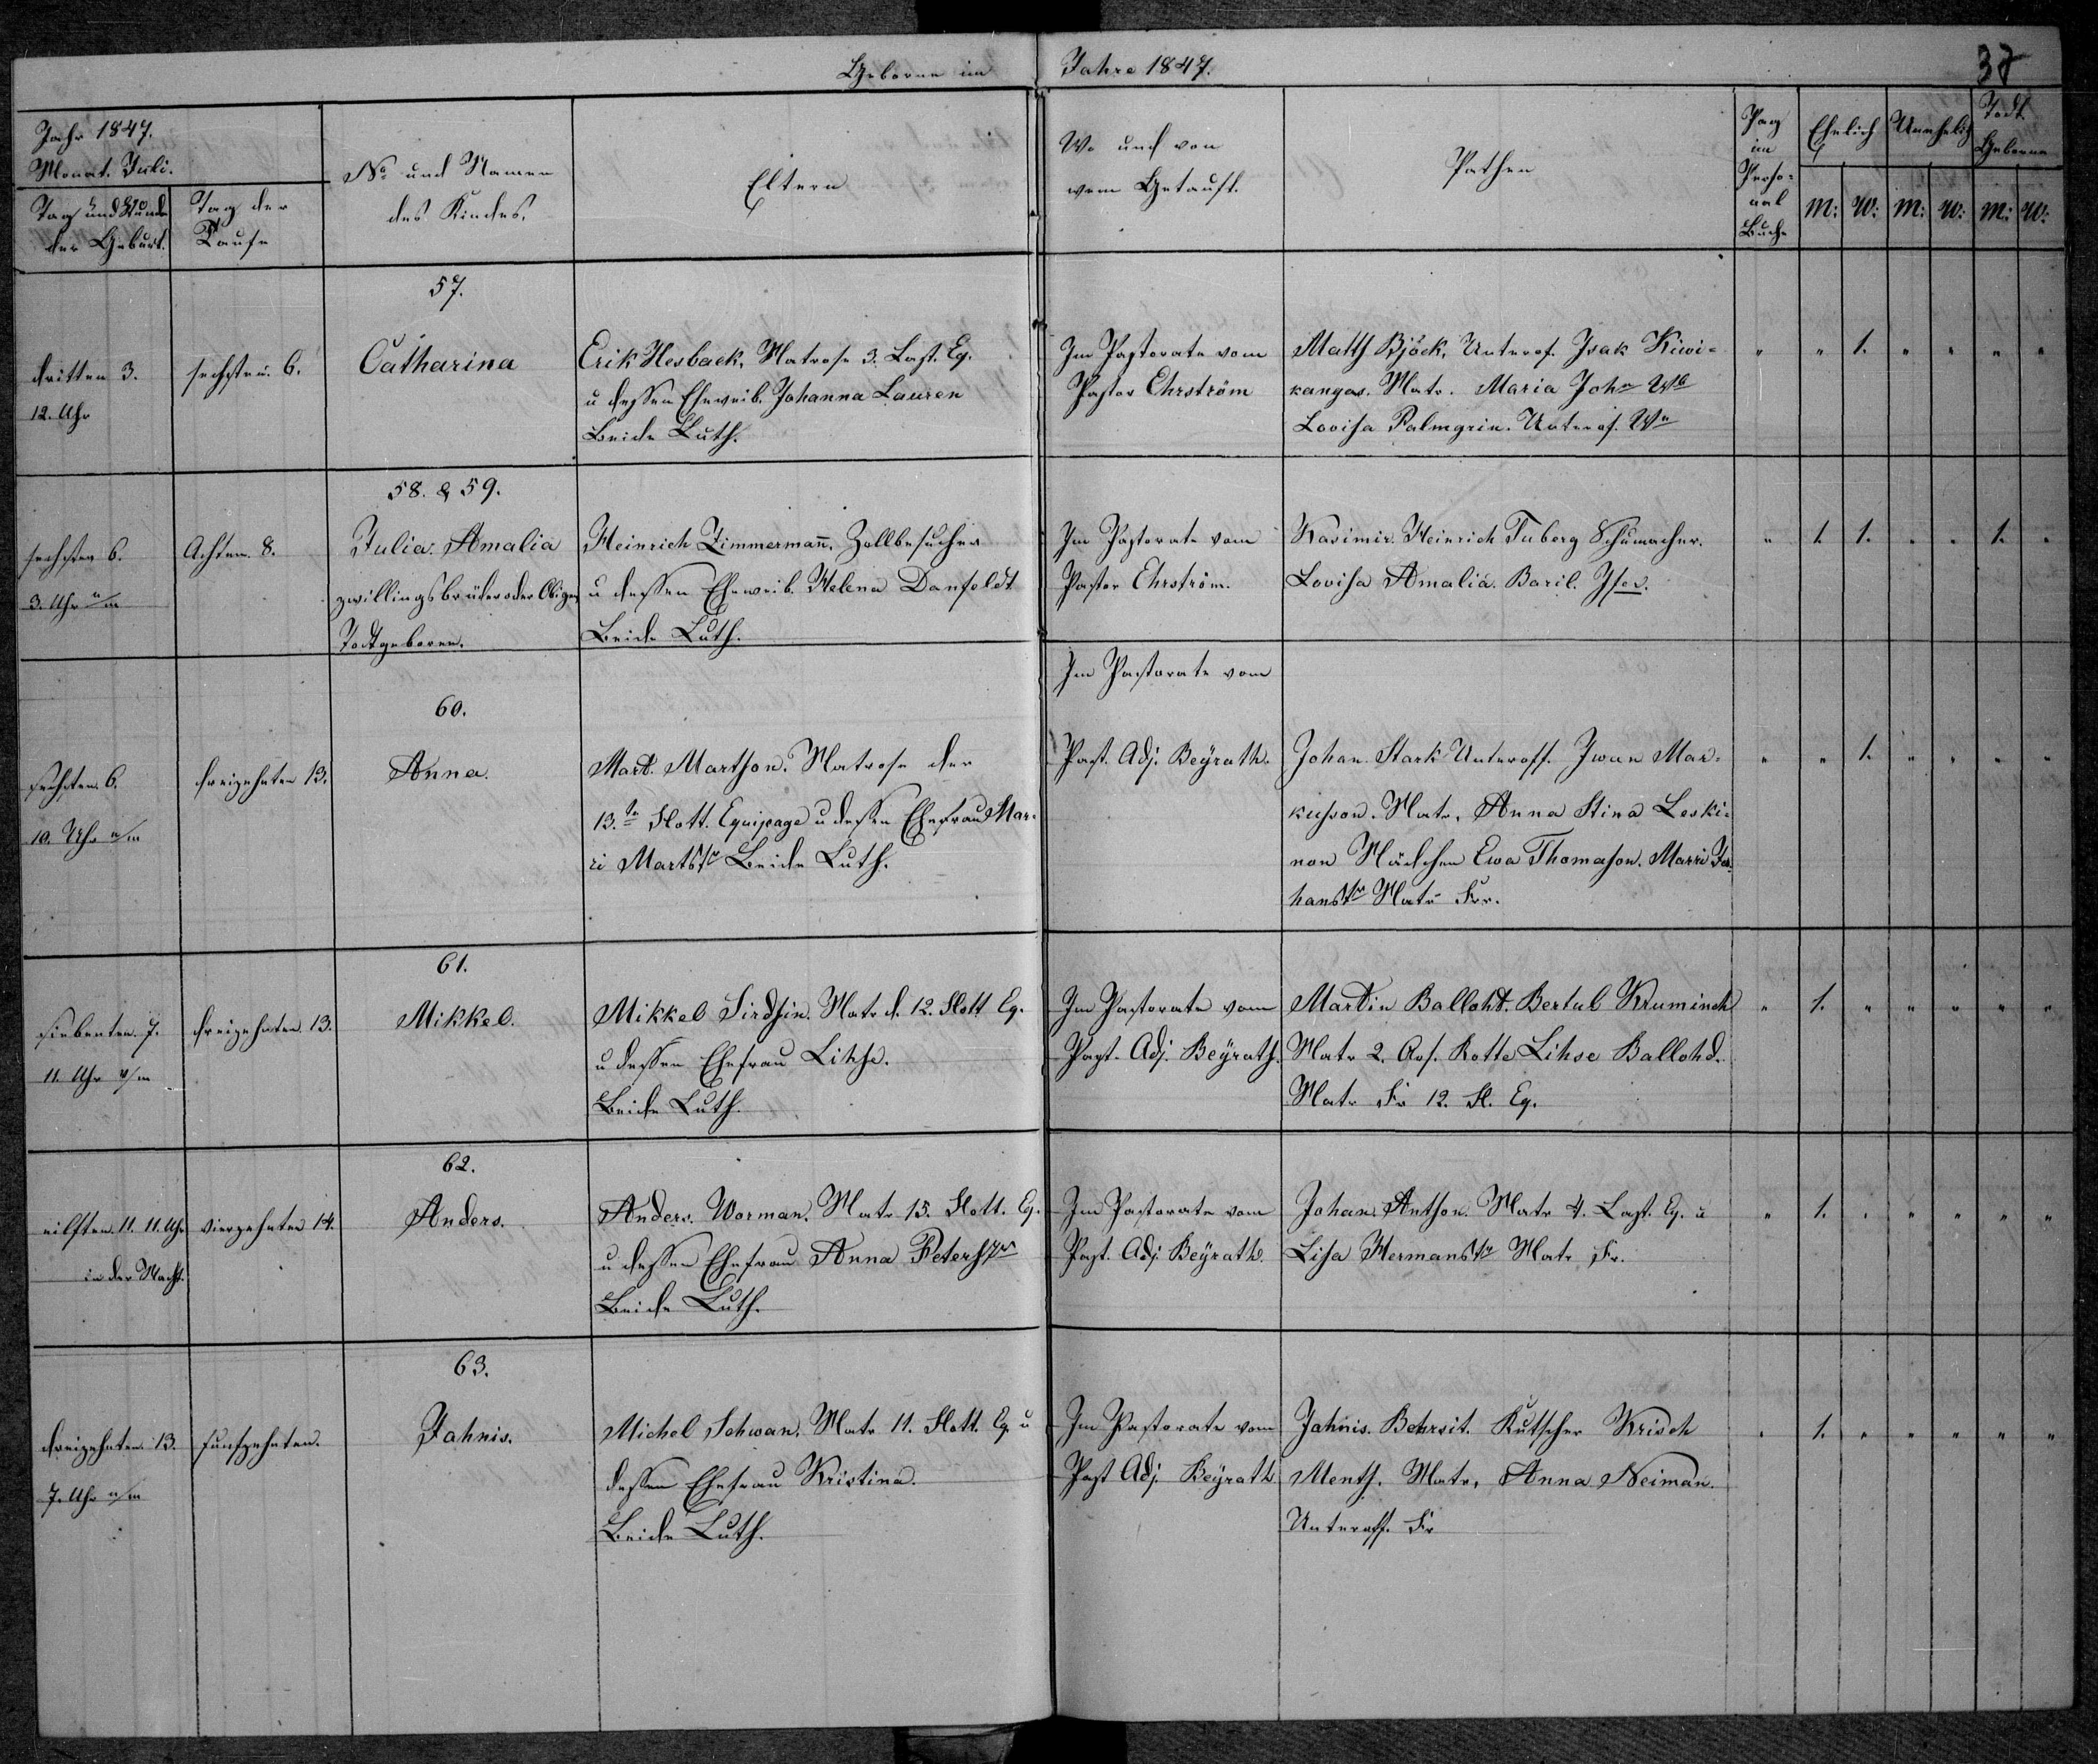 Geborne im Jahre 1847.
37
Jahr 1847.
Monat. Juli.
Tag und Stunde
der Geburt.
Tag der
Taufe
No und Namen
des Kindes.
Eltern
Wo und von
wem Getauft.
Pathen
Pag
im
Perso-
nal
Buche
Ehelich
Unehelich
Todt
Geborne
m: w: m: w: m: w:
57.
dritten 3.
12. Uhr
sechsten. 6.
Catharina
Erik Hesback, Matrose 3. Last. Eq.
u dessen Eheweib. Johanna Lauren
Beide Luth.
Im Pastorate vom
Pastor Ehrström
Matth Bjöck, Unterof. Isak Kiwi-
kangas. Matr. Maria John Wb
Lovisa Palmgrin. Unterof. We
" " 1. " " " "
58. & 59.
sechsten 6.
3. Uhr n/m
Achten. 8.
Julia. Amalia
zwillingsbruder der Obigen
Todtgeboren.
Heinrich Zimmermañ, Zollbesucher
u dessen Eheweib. Helena Danfeldt
Beide Luth.
Im Pastorate vom
Pastor Ehrström.
Kasimir. Heinrich Tuberg Schumacher.
Lovisa Amalia. Basil.
" 1. 1. " " 1. "
60.
sechsten. 6.
10. Uhr n/m
dreizehnten 13.
Anna.
Mart. Martson. Matrose der
13.te Flott. Equipage u dessen Ehefrau Mar-
ri Martstr Beide Luth.
Im Pastorate vom
Past. Adj. Beÿrath.
Johan. Stark Unteroff. Iwan Mar-
kusson. Matr, Anna Stina Leski-
non Mädchen Ewa Thomason. Marri Jo-
hanstr Matr Frr.
" " 1. " " " "
61.
siebenten. 7.
11. Uhr v/m
dreizehnten. 13.
Mikkel.
Mikkel Sirdsin. Matr d. 12. Flott Eq.
u dessen Ehefrau Lihse.
Beide Luth.
Im Pastorate vom
Past. Adj. Beÿrath.
Martin Ballohd. Bertul Kruminch
Matr 2. Ars. Rotte Lihse Ballohd.
Matr Fr 12. Fl. Eq.
" 1. " " " " "
62.
eilften. 11. 11. Uhr
in der Nacht.
vierzehnten 14.
Anders.
Anders. Worman. Matr 15. Flott. Eq.
u dessen Ehefrau Anna Peterstr
Beide Luth.
Im Pastorate vom
Past. Adj. Beÿrath.
Johan. Antson. Matr 4. Last. Eq. u
Lisa Hermanstr Matr Fr.
" 1. " " " " "
63.
dreizehnten. 13.
7. Uhr n/m
funfzehnten.
Jahnis.
Michel Schwan. Matr 11. Flott. Eq. u
dessen Ehefrau Kristina.
Beide Luth.
Im Pastorate vom
Past Adj. Beÿrath
Jahnis. Behrsit. Kutscher Krisch
Menth. Matr, Anna Neiman.
Unteroff. Fr
" 1. " " " " "